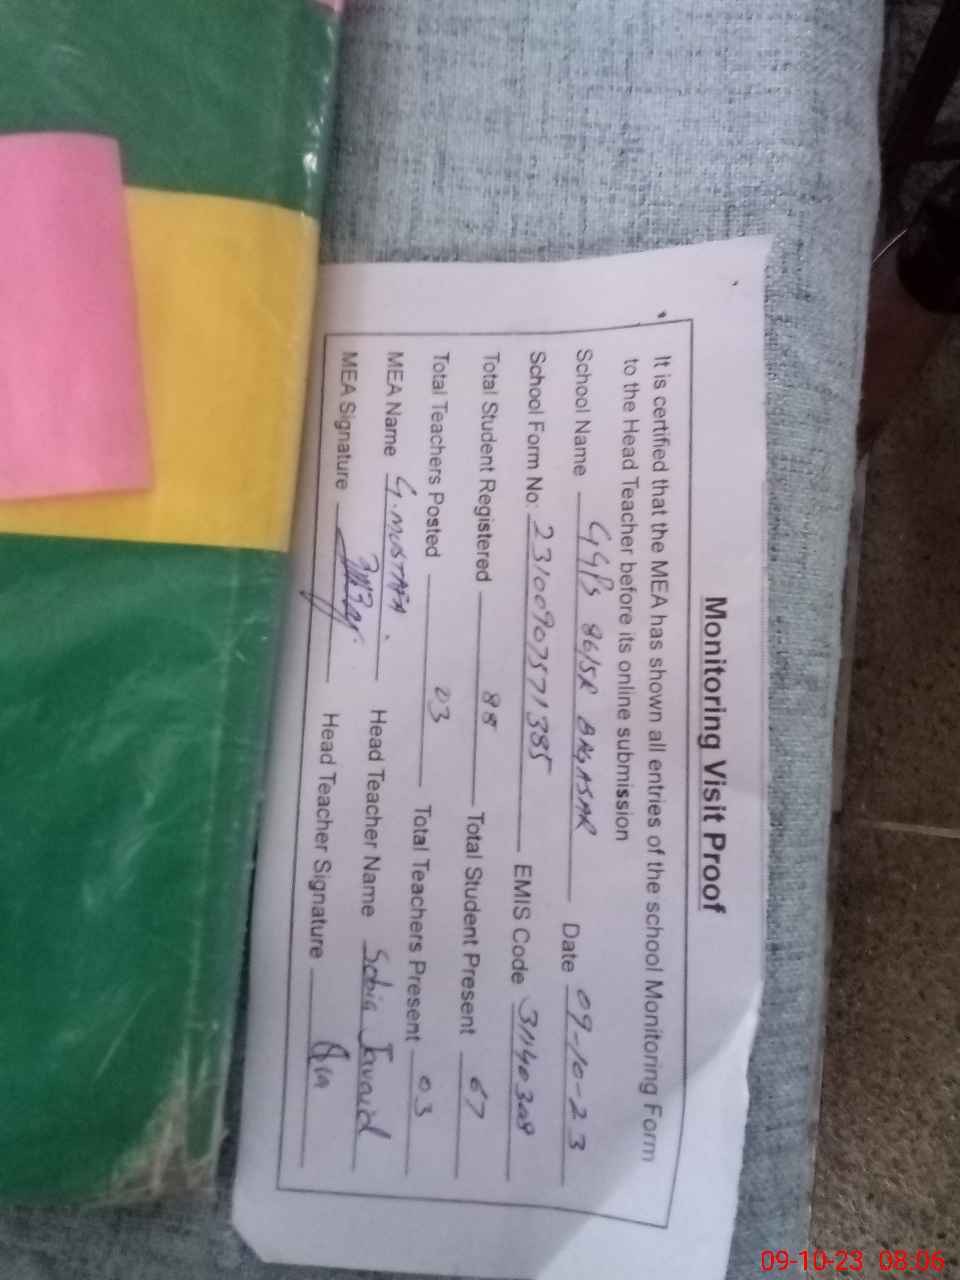 Monitoring Visit Proof
It is certified that the MEA has shown all entries of the school Monitoring Form
to the Head Teacher before its online submission
School Name GGPS 86/5R BAGASAR Date 09-10-23
School Form No: 23100907571385 EMIS Code 31140309
Total Student Registered 88 Total Student Present 67
Total Teachers Posted 03 Total Teachers Present 03
MEA Name G.MUSTAFA. Head Teacher Name Sobia Javaid
MEA Signature Head Teacher Signature
09-10-23 08:06